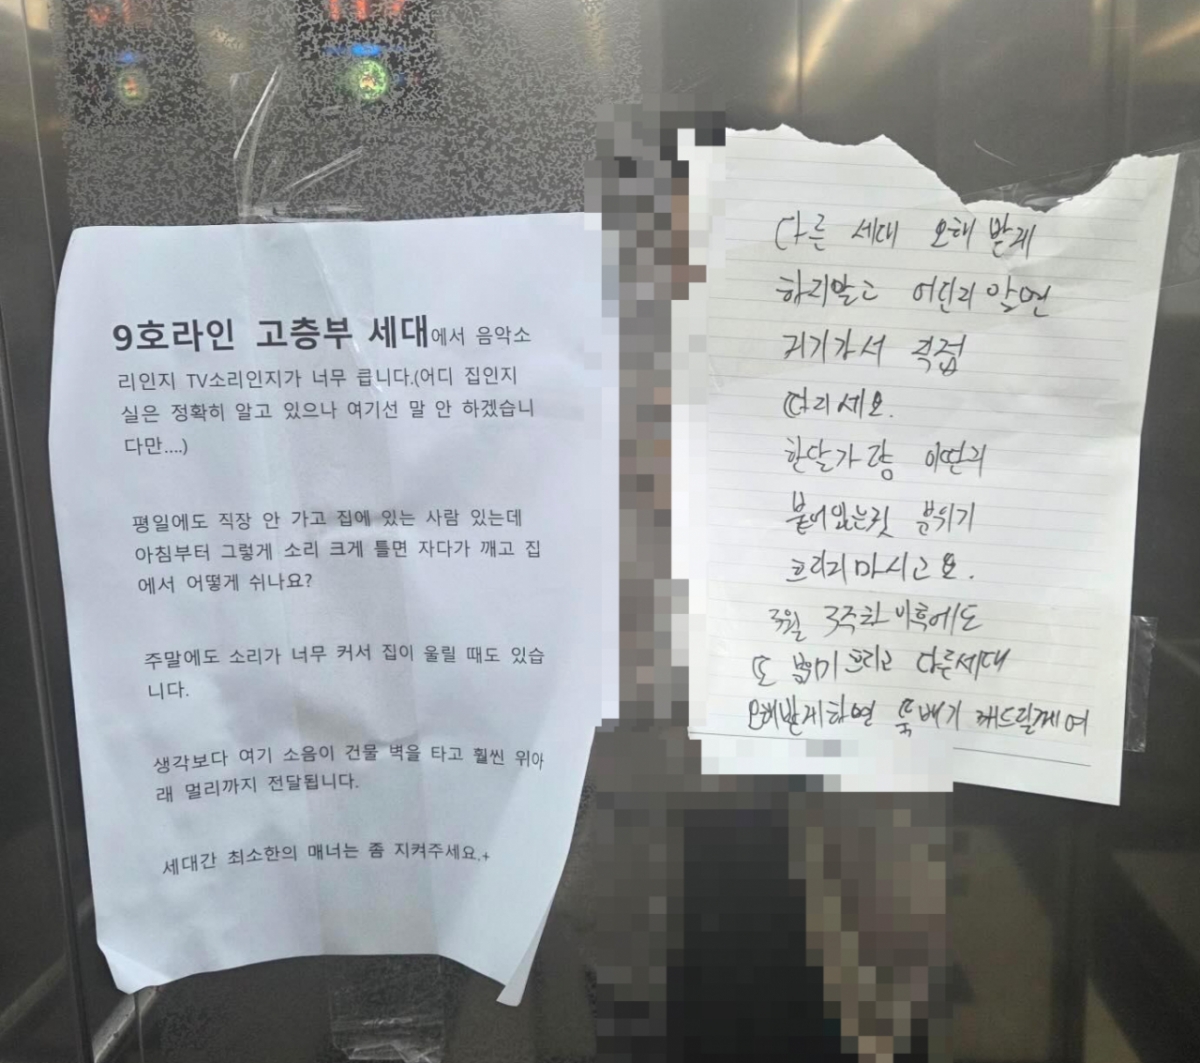 9호라인 고층부 세대에서 음악소
리인지 TV소리인지가 너무 큽니다.(어디 집인지
실은 정확히 알고 있으나 여기선 말 안 하겠습니
다만....)
평일에도 직장 안 가고 집에 있는 사람 있는데
아침부터 그렇게 소리 크게 틀면 자다가 깨고 집
에서 어떻게 쉬나요?
주말에도 소리가 너무 커서 집이 울릴 때도 있습
니다.
생각보다 여기 소음이 건물 벽을 타고 훨씬 위아
래 멀리까지 전달됩니다.
세대간 최소한의 매너는 좀 지켜주세요.
다른 세대 오해 받게
하지말고 어딘지 알면
거기가서 직접
따지세요.
한달가량 이딴거
붙어있는것 분위기
흐리지마시고요.
3월 3주차 이후에도
또 분위기 흐리고 다른세대
오해받게하면 뚝배기 깨드릴게여